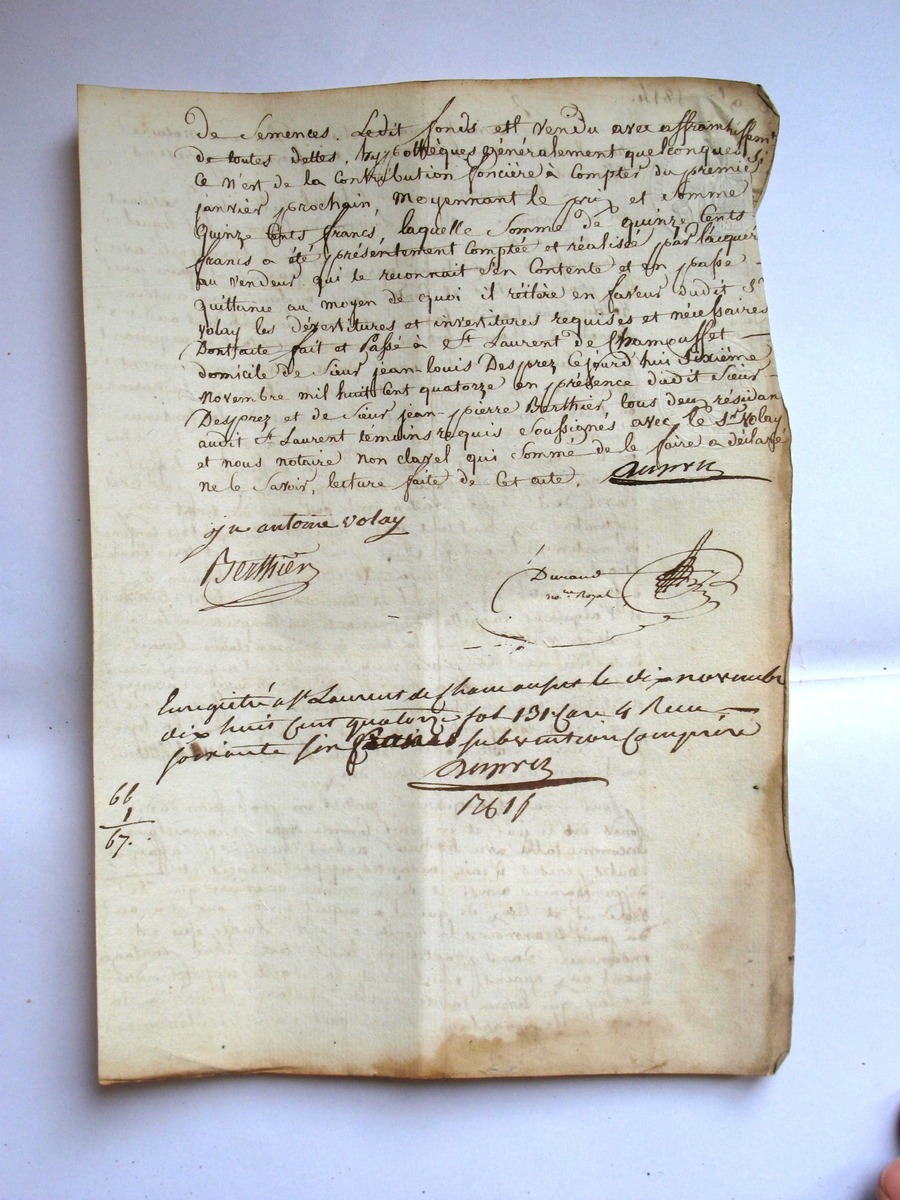 de Semences. Ledit fonds est vendu avec affranchissemt
de toutes dettes, hypothèques généralement quelconques si
ce n'est de la contribution foncière a compter du premier
janvier prochain, moyennant le prix et somme
quinze cents francs, laquelle somme de quinze cents
francs a été présentement comptée et réalisée par l'acquér
au vendeur qui le reconnait s'en contente et en passe
quittance au moyen de quoi il réitère en faveur dudit Sr
volay les dévestitures et investitures requises et nécessaires
Dont acte fait et Passé à St Laurent de Chamousset
domicile de Sieur jean-louis Desprez cejourd'hui sixième
novembre mil huit cent quatorze en présence dudit Sieur
Desprez et de Sieur jean-pierre Berthier tous deu résidan
audit St Laurent témoins requis soussignés avec le Sr volay
et nous notaire non clavel qui sommé de le faire a déclaré
ne le savoir, lecture faite de cet acte.
antoine volay
Berthier
Durand
nore Royal
Enregistré a St Laurent de Chamousset le dix novembre
dix huit cent quatorze fol 131 Case 4 Recu
soixante six francs subvention Comprise
66
1
67.